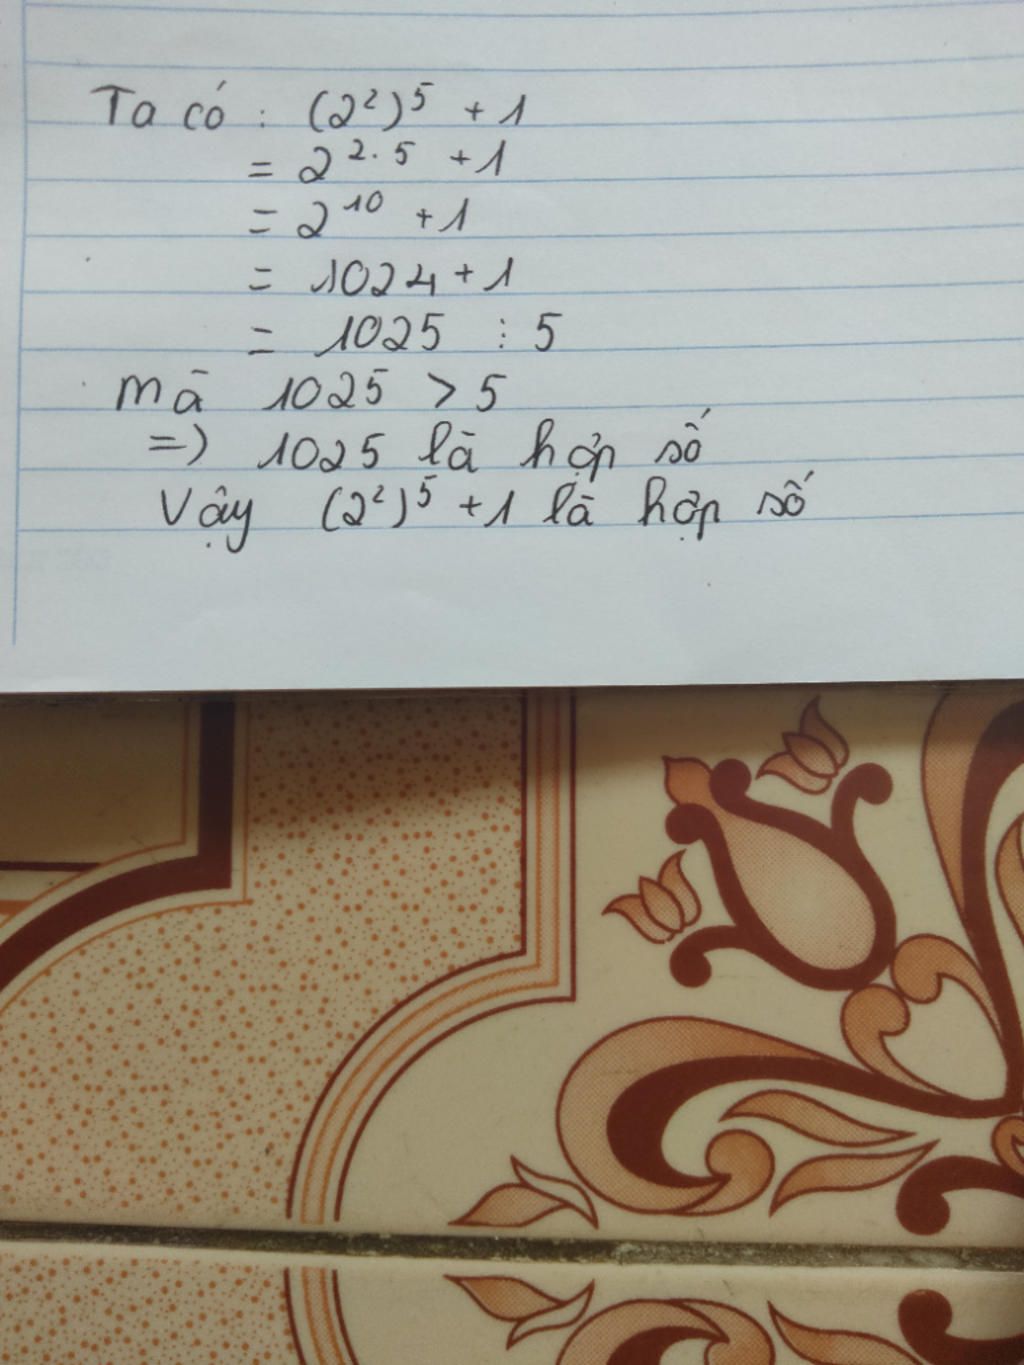 Ta có : (2²)⁵ + 1
= 2²·⁵ + 1
= 2¹⁰ + 1
= 1024 + 1
= 1025 ⋮ 5
mà 1025 > 5
=> 1025 là hợp số
Vậy (2²)⁵ + 1 là hợp số